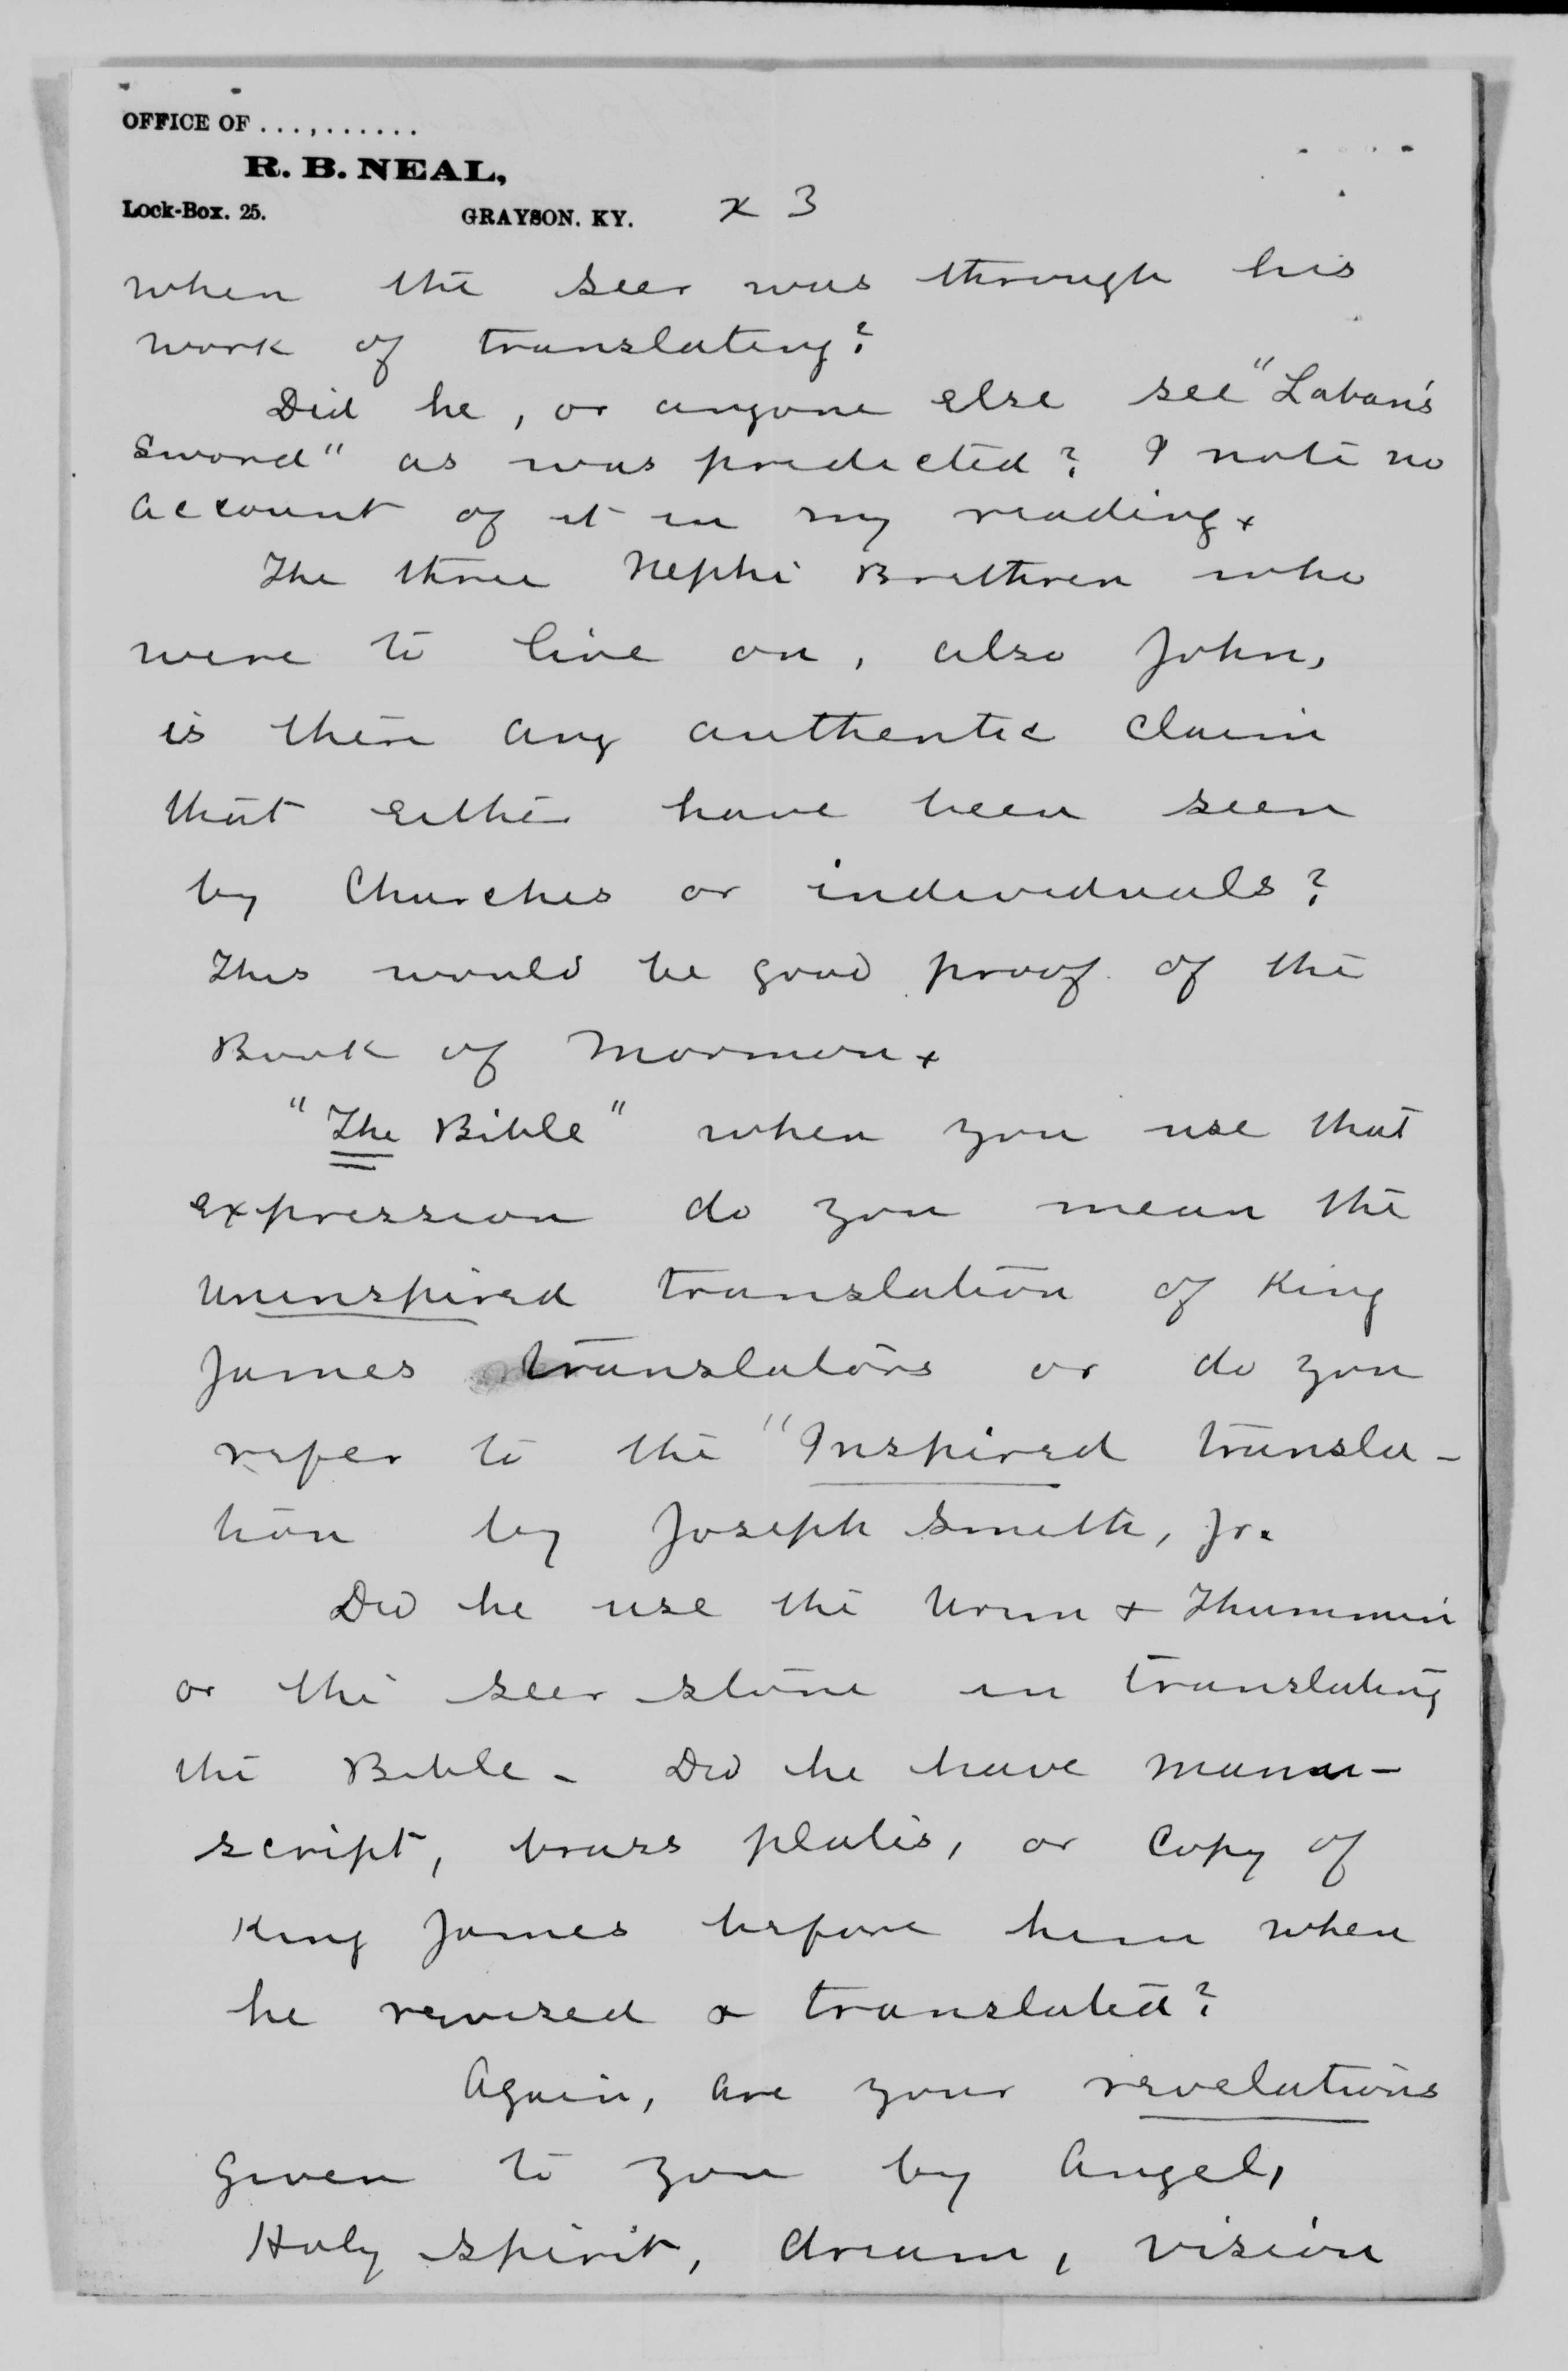 OFFICE OF ...,......
R. B. NEAL,
Lock-Box. 25. GRAYSON. KY. x 3
when the seer was through his
work of translating?
Did he, or anyone else see "Laban's
Sword" as was predicted? I note no
account of it in my reading x
The three Nephi Brethren who
were to live on, also John,
is there any authentic claim
that either have been seen
by Churches or individuals?
This would be good proof of the
Book of Mormon x
"The Bible" when you use that
expression do you mean the
uninspired translation of King
James translators or do you
refer to the "Inspired transla-
tion by Joseph Smith, Jr.
Did he use the Urim & Thummim
or the seer stone in translating
the Bible - Did he have manu-
script, brass plates, or copy of
King James before him when
he revised & translated?
Again, are your revelations
given to you by Angel,
Holy spirit, dream, vision